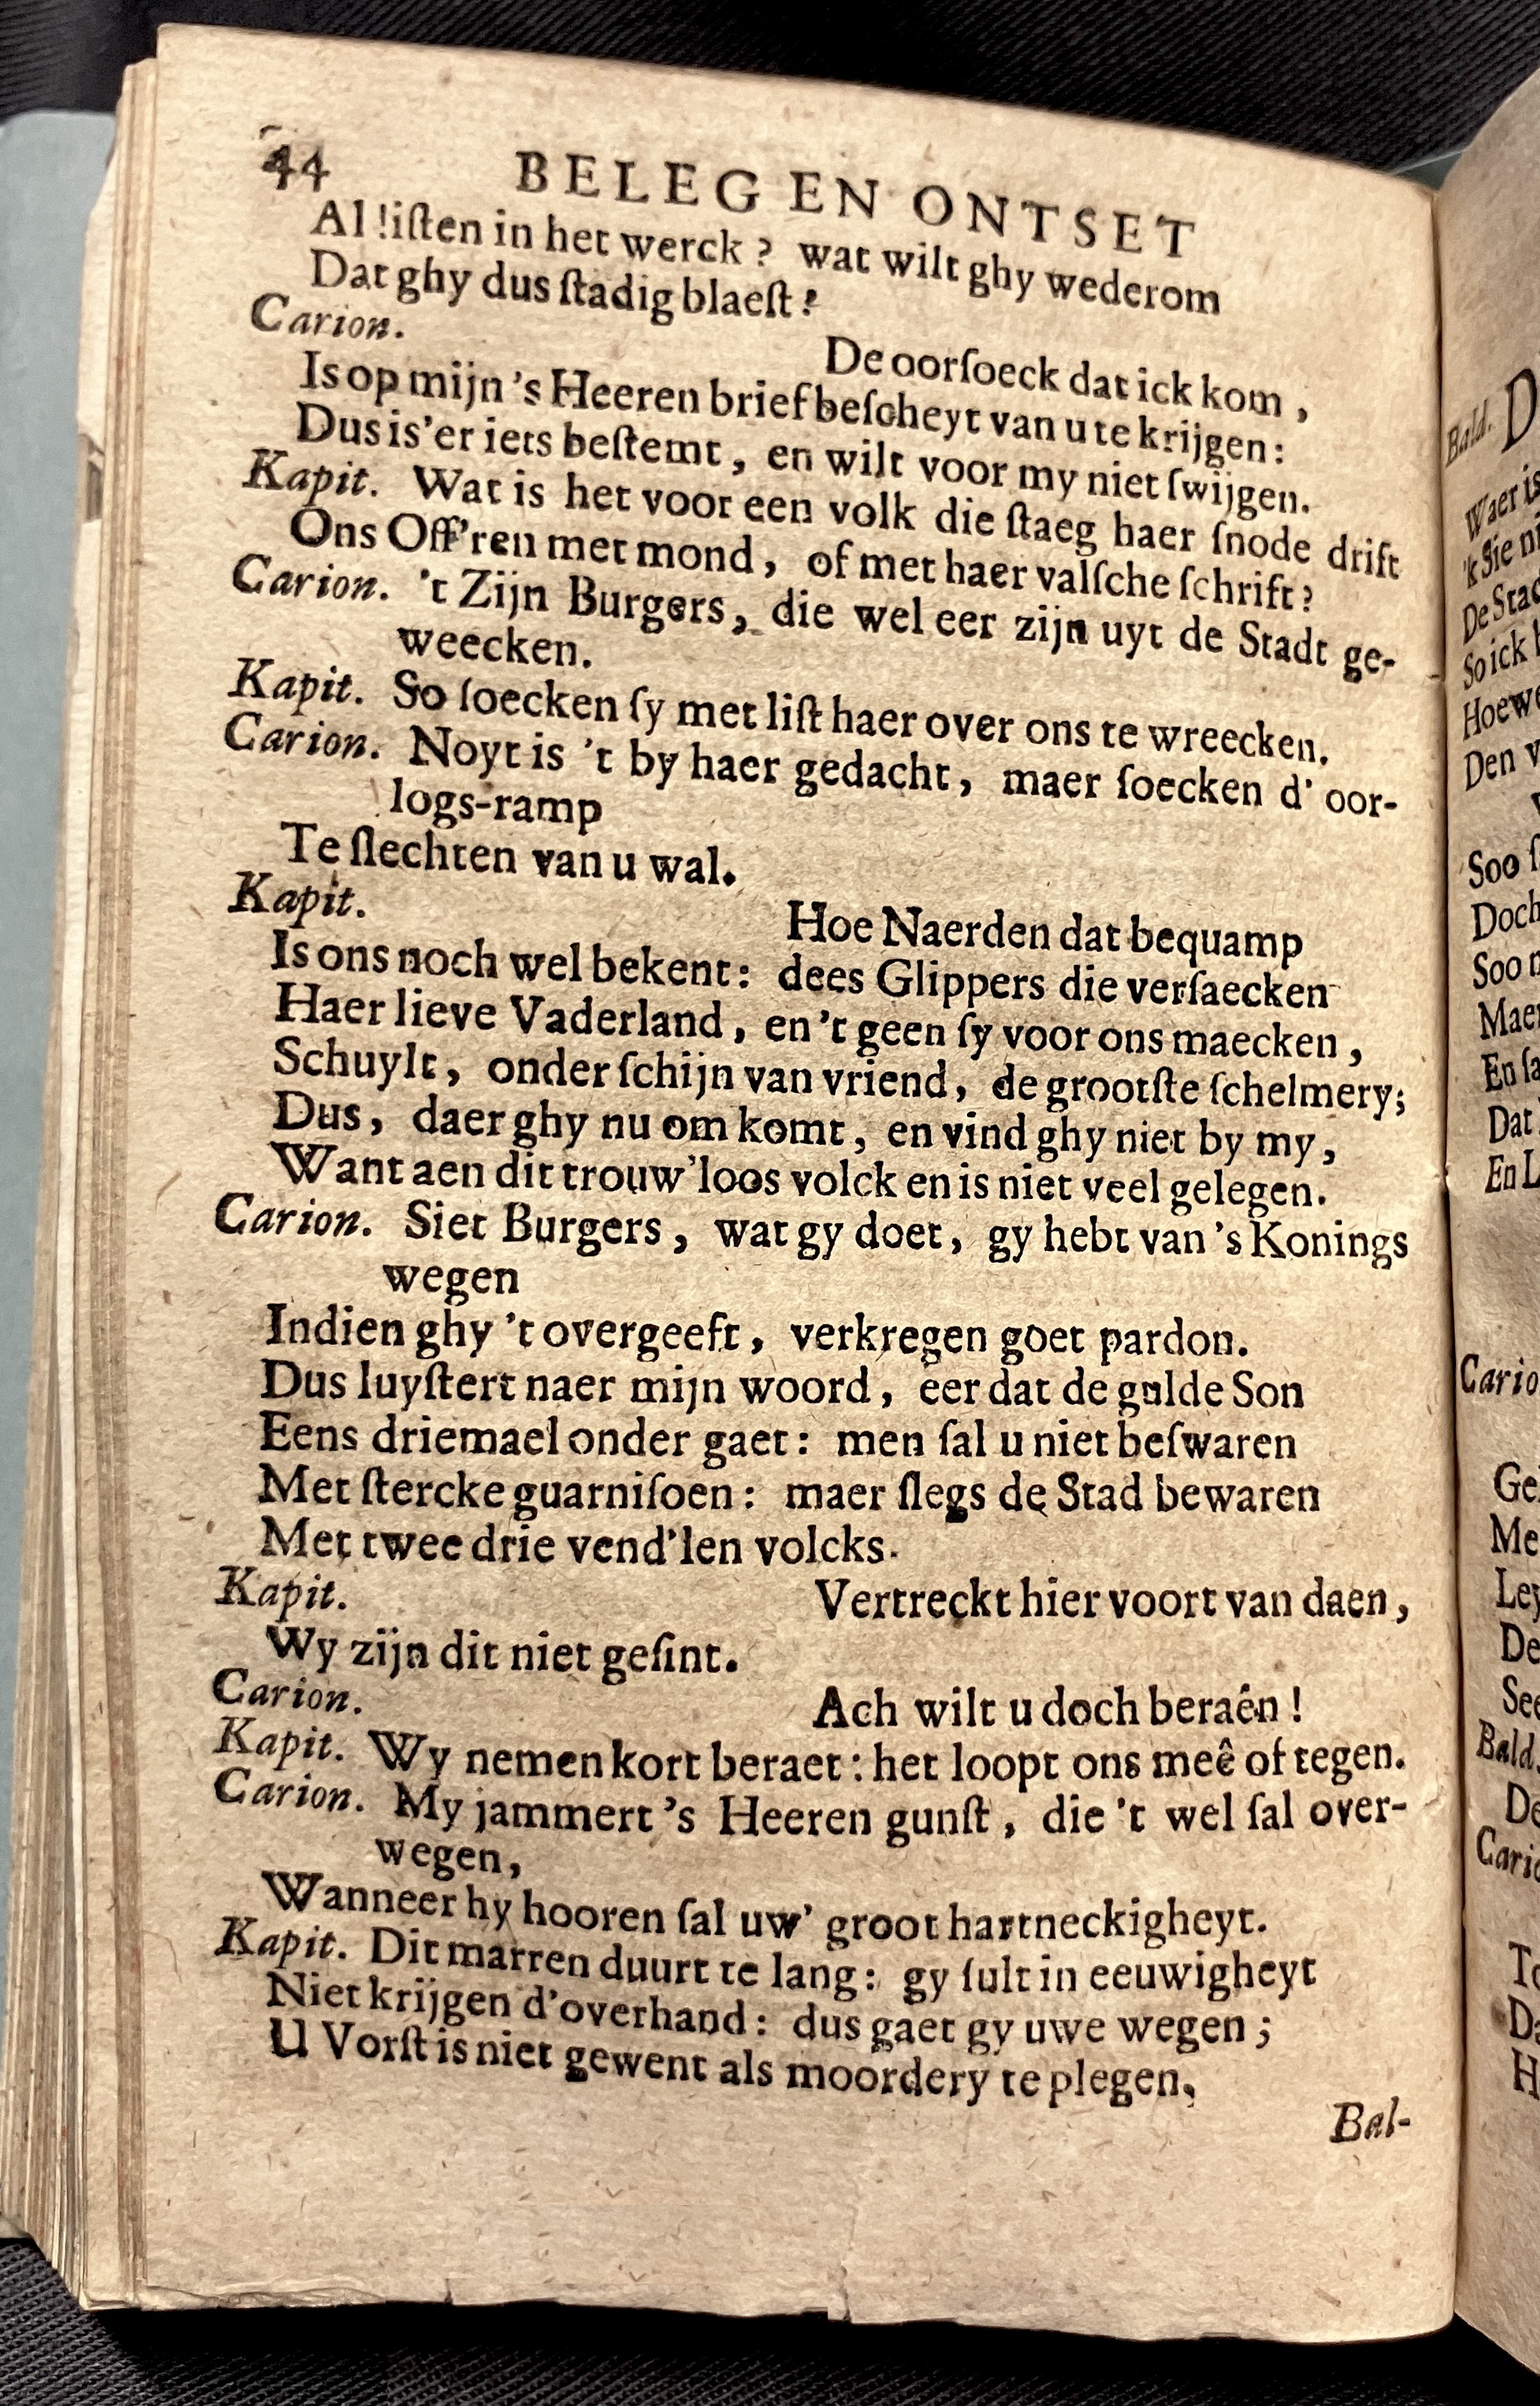 44 BELEG EN ONTSET
Al liſten in het werck? wat wilt ghy wederom
Dat ghy dus ſtadig blaeſt?
Carion.
De oorſoeck dat ick kom,
Is op mijn 's Heeren brief beſcheyt van u te krijgen:
Dus is'er iets beſtemt, en wilt voor my niet ſwijgen.
Kapit. Wat is het voor een volk die ſtaeg haer ſnode drift
Ons Off'ren met mond, of met haer valſche ſchrift?
Carion. 't Zijn Burgers, die wel eer zijn uyt de Stadt ge-
weecken.
Kapit. So ſoecken ſy met liſt haer over ons te wreecken.
Carion. Noyt is 't by haer gedacht, maer ſoecken d' oor-
logs-ramp
Te ſlechten van u wal.
Kapit.
Hoe Naerden dat bequamp
Is ons noch wel bekent: dees Glippers die verſaecken
Haer lieve Vaderland, en 't geen ſy voor ons maecken,
Schuylt, onder ſchijn van vriend, de grootſte ſchelmery;
Dus, daer ghy nu om komt, en vind ghy niet by my,
Want aen dit trouw'loos volck en is niet veel gelegen.
Carion. Siet Burgers, wat gy doet, gy hebt van 's Konings
wegen
Indien ghy 't overgeeft, verkregen goet pardon.
Dus luyſtert naer mijn woord, eer dat de gulde Son
Eens driemael onder gaet: men ſal u niet beſwaren
Met ſtercke guarniſoen: maer ſlegs de Stad bewaren
Met twee drie vend'len volcks.
Kapit.
Vertreckt hier voort van daen,
Wy zijn dit niet geſint.
Carion.
Ach wilt u doch beraên!
Kapit. Wy nemen kort beraet: het loopt ons meê of tegen.
Carion. My jammert 's Heeren gunſt, die 't wel ſal over-
wegen,
Wanneer hy hooren ſal uw' groot hartneckigheyt.
Kapit. Dit marren duurt te lang: gy ſult in eeuwigheyt
Niet krijgen d'overhand: dus gaet gy uwe wegen;
U Vorſt is niet gewent als moordery te plegen,
Bal-